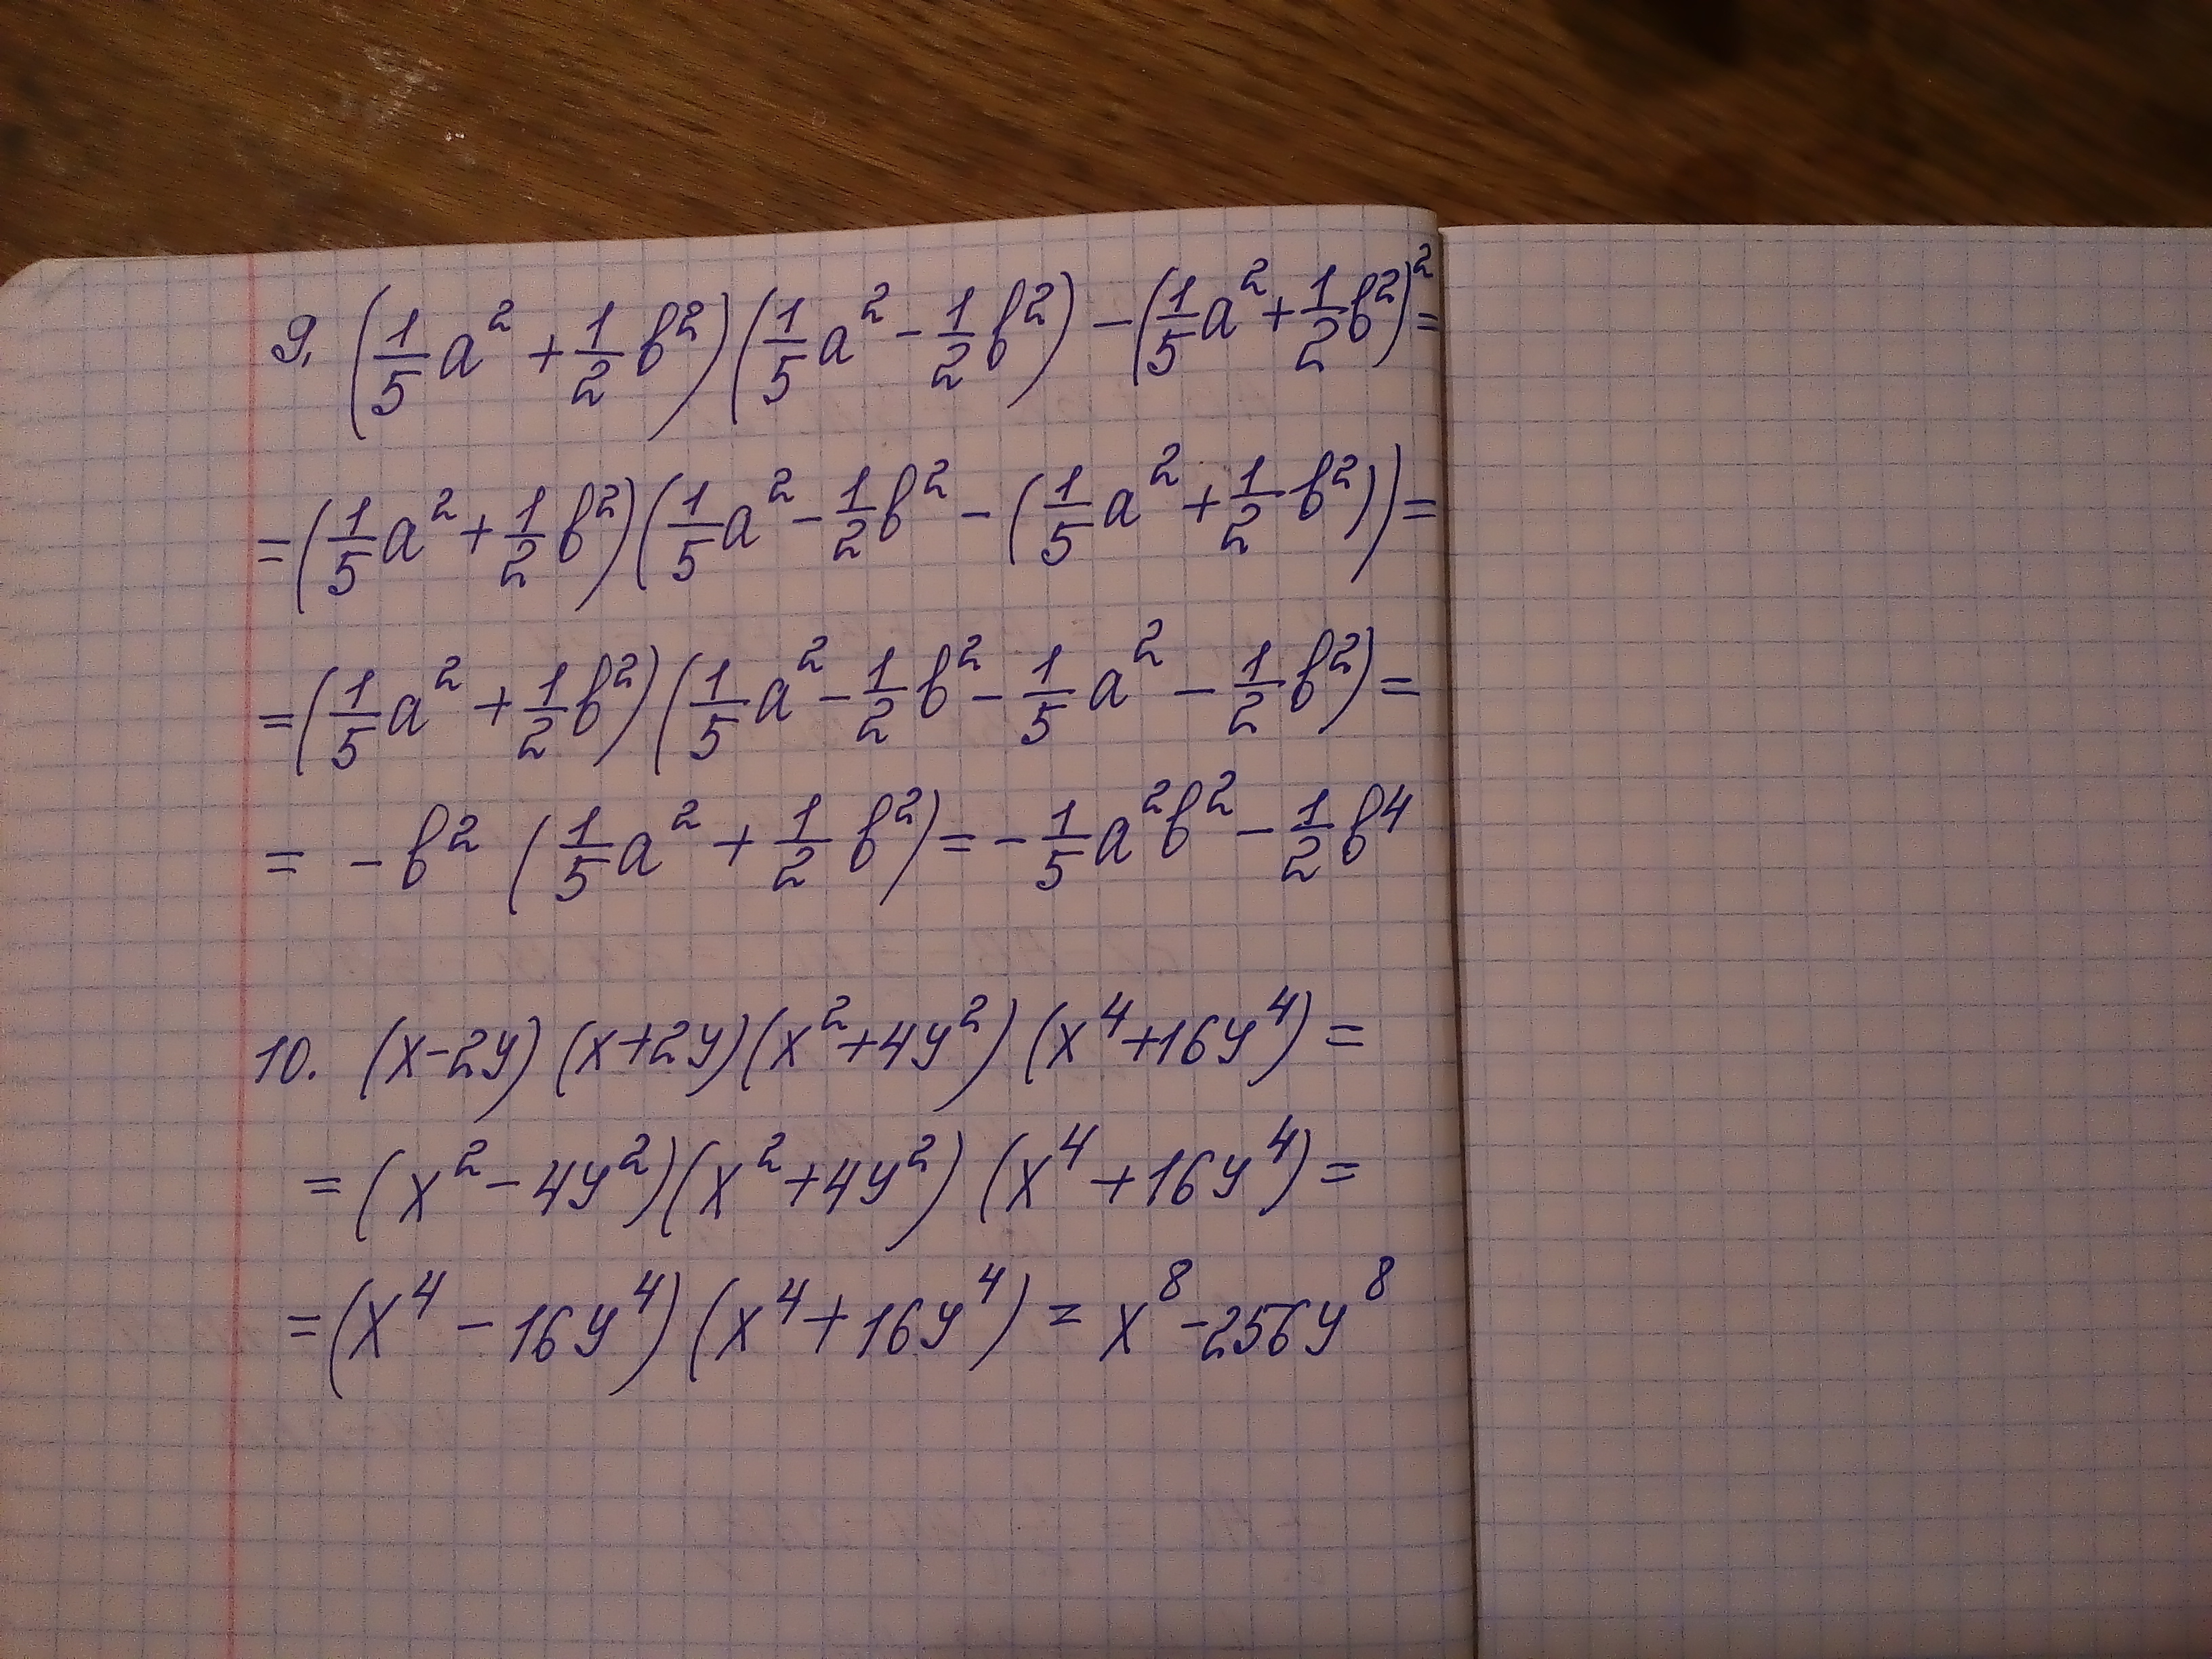 9. (1/5 a² + 1/2 b²)(1/5 a² - 1/2 b²) - (1/5 a² + 1/2 b²)² =
= (1/5 a² + 1/2 b²)(1/5 a² - 1/2 b² - (1/5 a² + 1/2 b²)) =
= (1/5 a² + 1/2 b²)(1/5 a² - 1/2 b² - 1/5 a² - 1/2 b²) =
= - b² (1/5 a² + 1/2 b²) = - 1/5 a² b² - 1/2 b⁴
10. (x-2y)(x+2y)(x²+4y²)(x⁴+16y⁴) =
= (x² - 4y²)(x² + 4y²)(x⁴ + 16y⁴) =
= (x⁴ - 16y⁴)(x⁴ + 16y⁴) = x⁸ - 256y⁸